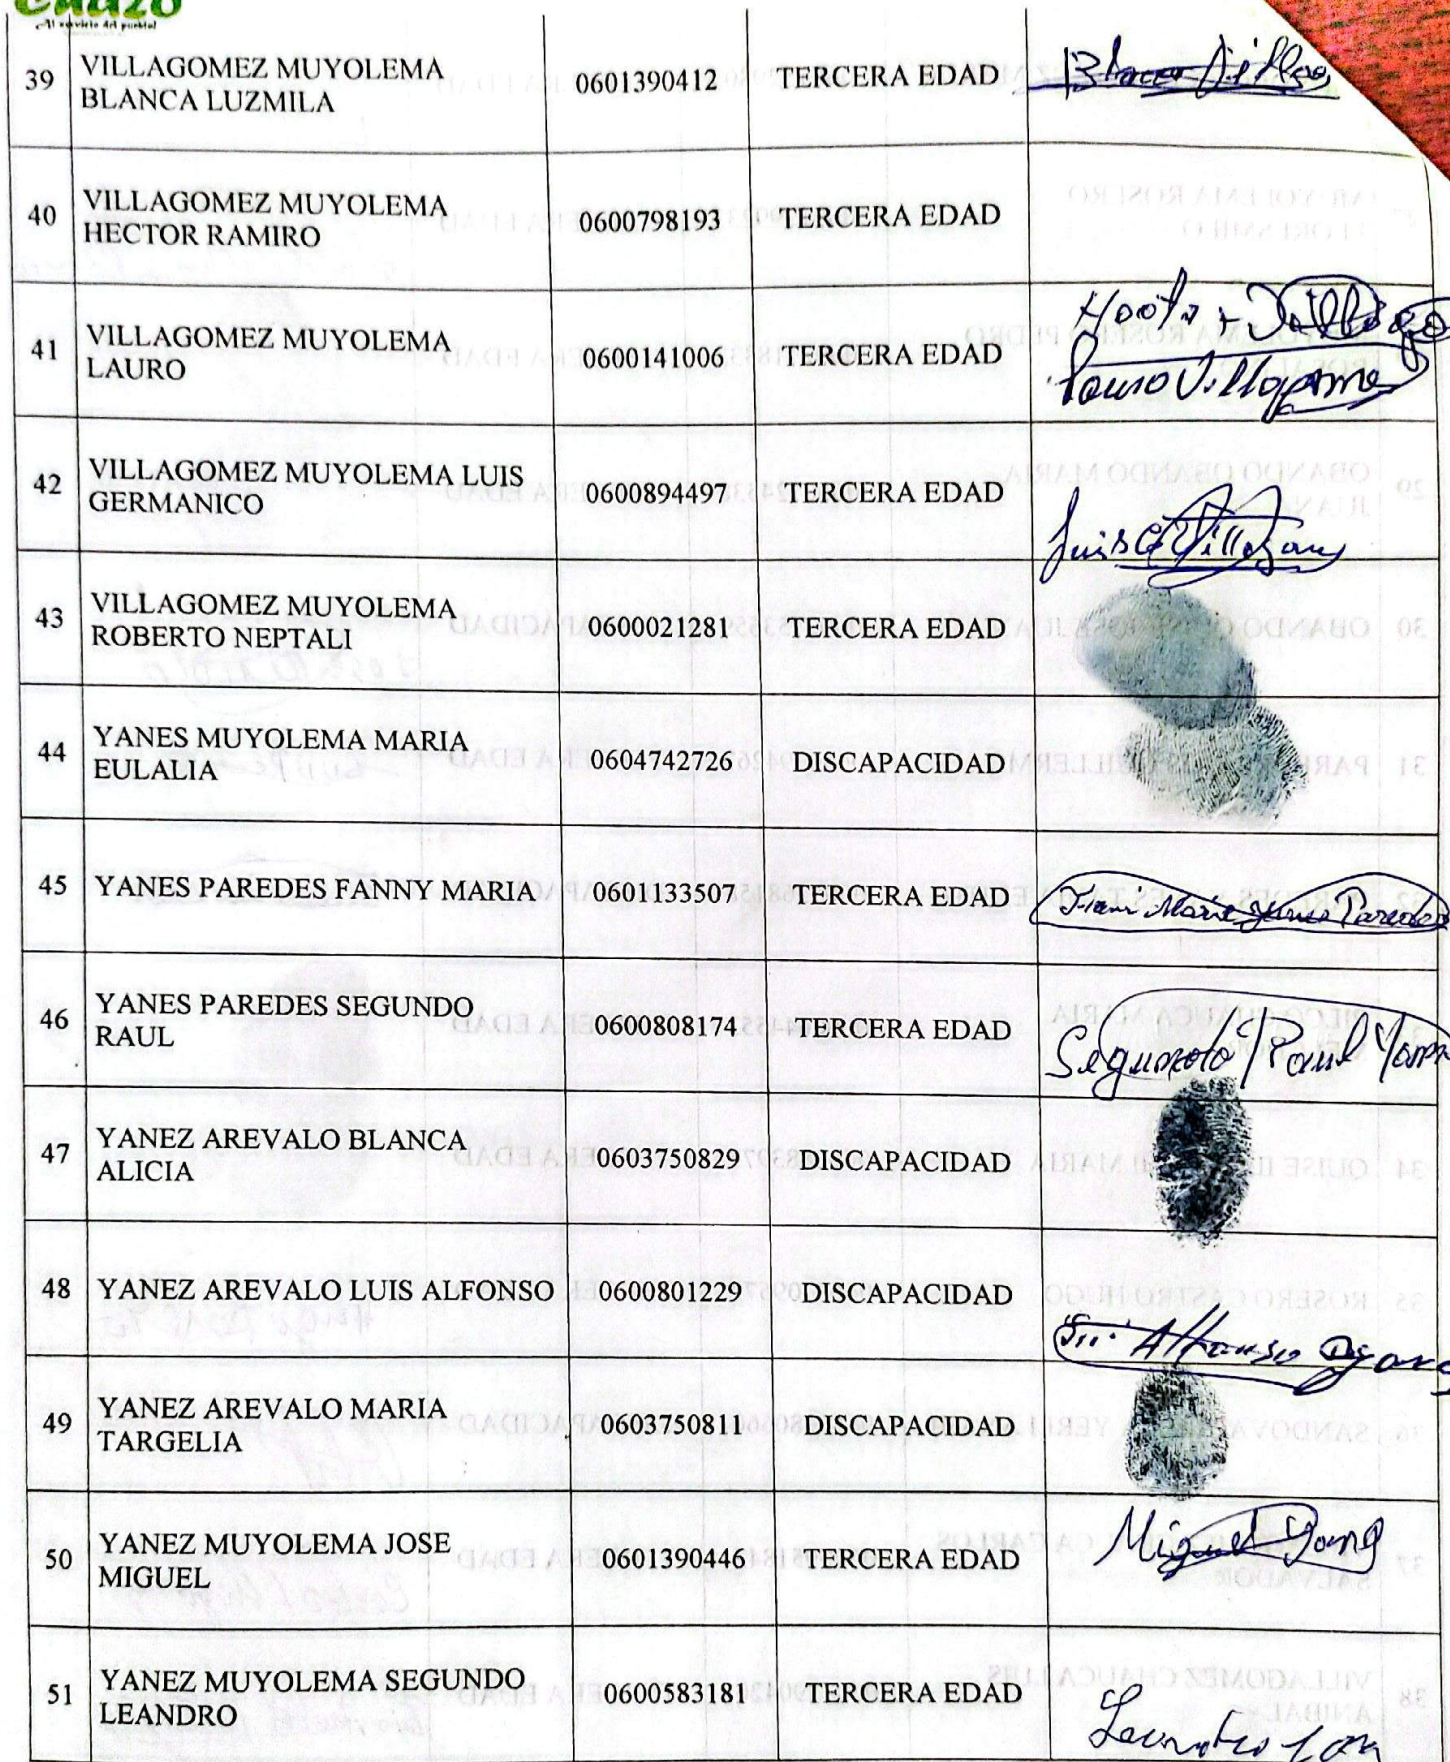 Al servicio del pueblo!
39 VILLAGOMEZ MUYOLEMA
BLANCA LUZMILA 0601390412 TERCERA EDAD
40 VILLAGOMEZ MUYOLEMA
HECTOR RAMIRO 0600798193 TERCERA EDAD
41 VILLAGOMEZ MUYOLEMA
LAURO 0600141006 TERCERA EDAD
42 VILLAGOMEZ MUYOLEMA LUIS
GERMANICO 0600894497 TERCERA EDAD
43 VILLAGOMEZ MUYOLEMA
ROBERTO NEPTALI 0600021281 TERCERA EDAD
44 YANES MUYOLEMA MARIA
EULALIA 0604742726 DISCAPACIDAD
45 YANES PAREDES FANNY MARIA 0601133507 TERCERA EDAD
46 YANES PAREDES SEGUNDO
RAUL 0600808174 TERCERA EDAD
Segundo Raul
47 YANEZ AREVALO BLANCA
ALICIA 0603750829 DISCAPACIDAD
48 YANEZ AREVALO LUIS ALFONSO 0600801229 DISCAPACIDAD
Alfonso
49 YANEZ AREVALO MARIA
TARGELIA 0603750811 DISCAPACIDAD
50 YANEZ MUYOLEMA JOSE
MIGUEL 0601390446 TERCERA EDAD
Miguel
51 YANEZ MUYOLEMA SEGUNDO
LEANDRO 0600583181 TERCERA EDAD